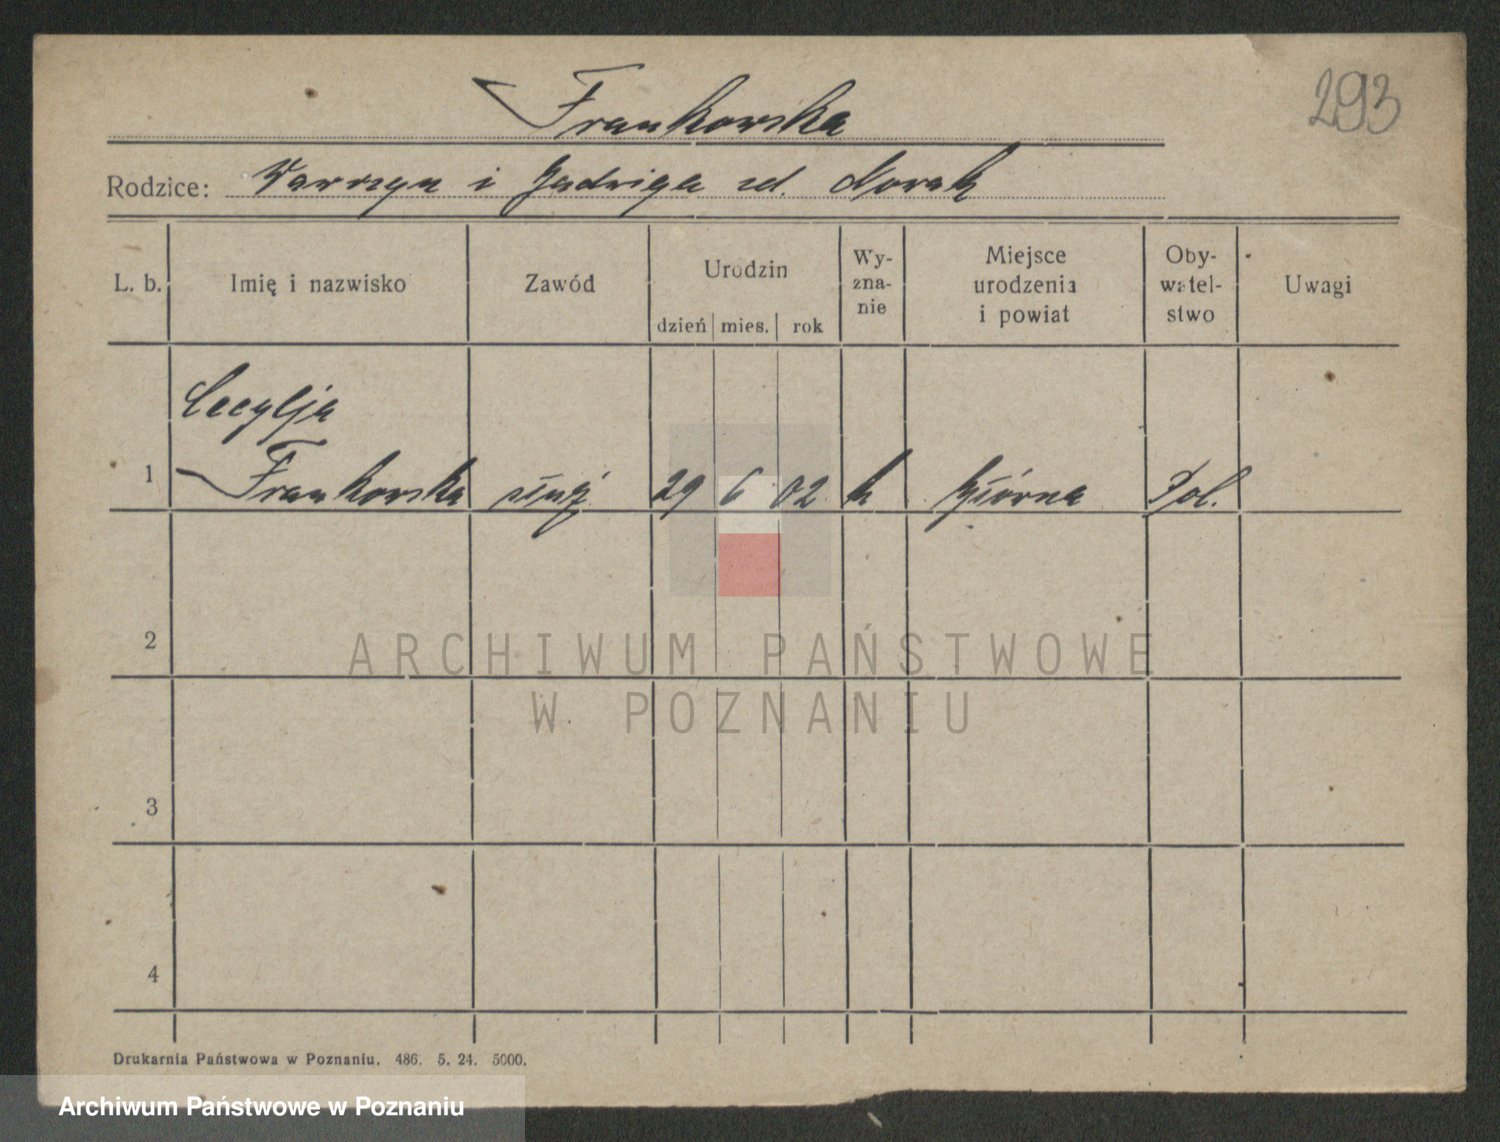 293
Frankowska
Rodzice: Wawrzyn i Jadwiga zd. Nowak
L. b.
Imię i nazwisko
Zawód
Urodzin
dzień mies. rok
Wy-
zna-
nie
Miejsce
urodzenia
i powiat
Oby-
watel-
stwo
Uwagi
Cecylja
1 Frankowska służ. 29 6 02 k Pol.
2
3
4
ARCHIWUM PAŃSTWOWE
W POZNANIU
Drukarnia Państwowa w Poznaniu. 486. 5. 24. 5000.
Archiwum Państwowe w Poznaniu